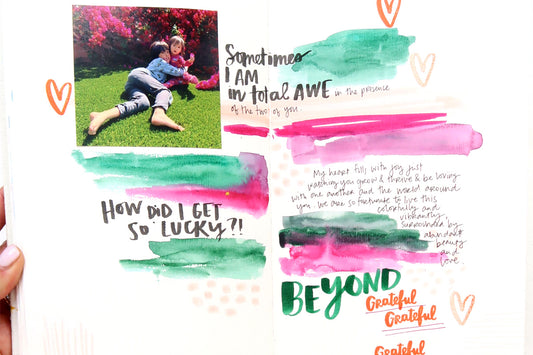 Sometimes
I AM
in total AWE in the presence
of the two of you
HOW DID I GET
SO LUCKY?!
My heart fills with joy just
watching you grow & thrive & be loving
with one another and the world around
you. we are so fortunate to live this
colorfully and
vibrantly,
surrounded by
abundant
beauty
and
love.
BEYOND
Grateful
Grateful
Grateful